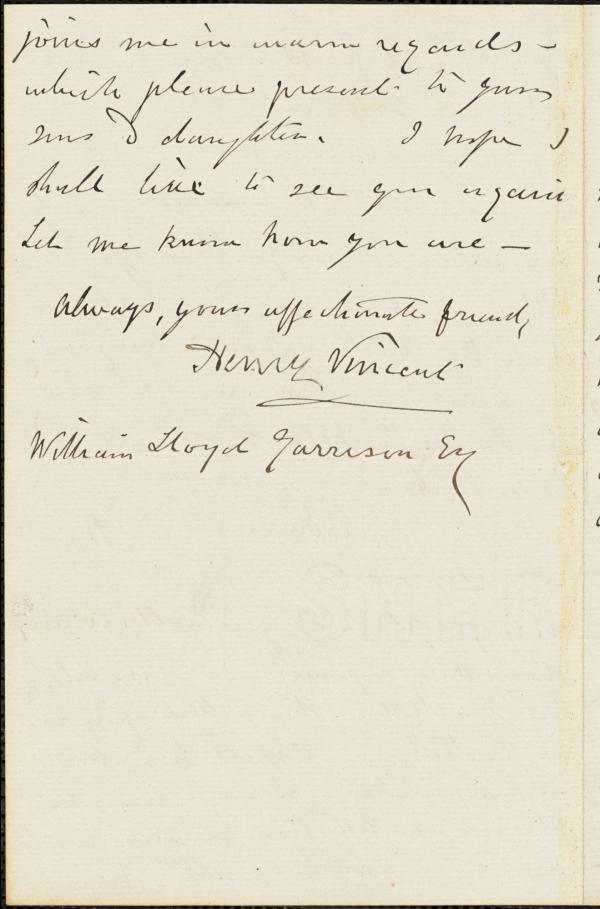 joins me in warm regards —
which please present to your
sons & daughter. I hope I
shall live to see you again
Let me know how you are —
always, yours affectionate friend,
Henry Vincent
William Lloyd Garrison Esq